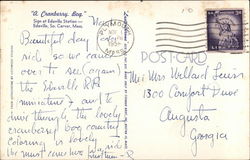 "A Cranberry Bog."
Sign at Edaville Station —
Edaville, So. Carver, Mass.
Beautiful day for a
ride so we came
over to see again
the Edaville RR
miniature & and to
drive through the lovely
cranberry bog country
Coloring is lovely
the most
PLYMOUTH
MASS.
POST CARD
Mr Mrs Willard
1300 Comfort Drive
Augusta
Georgia